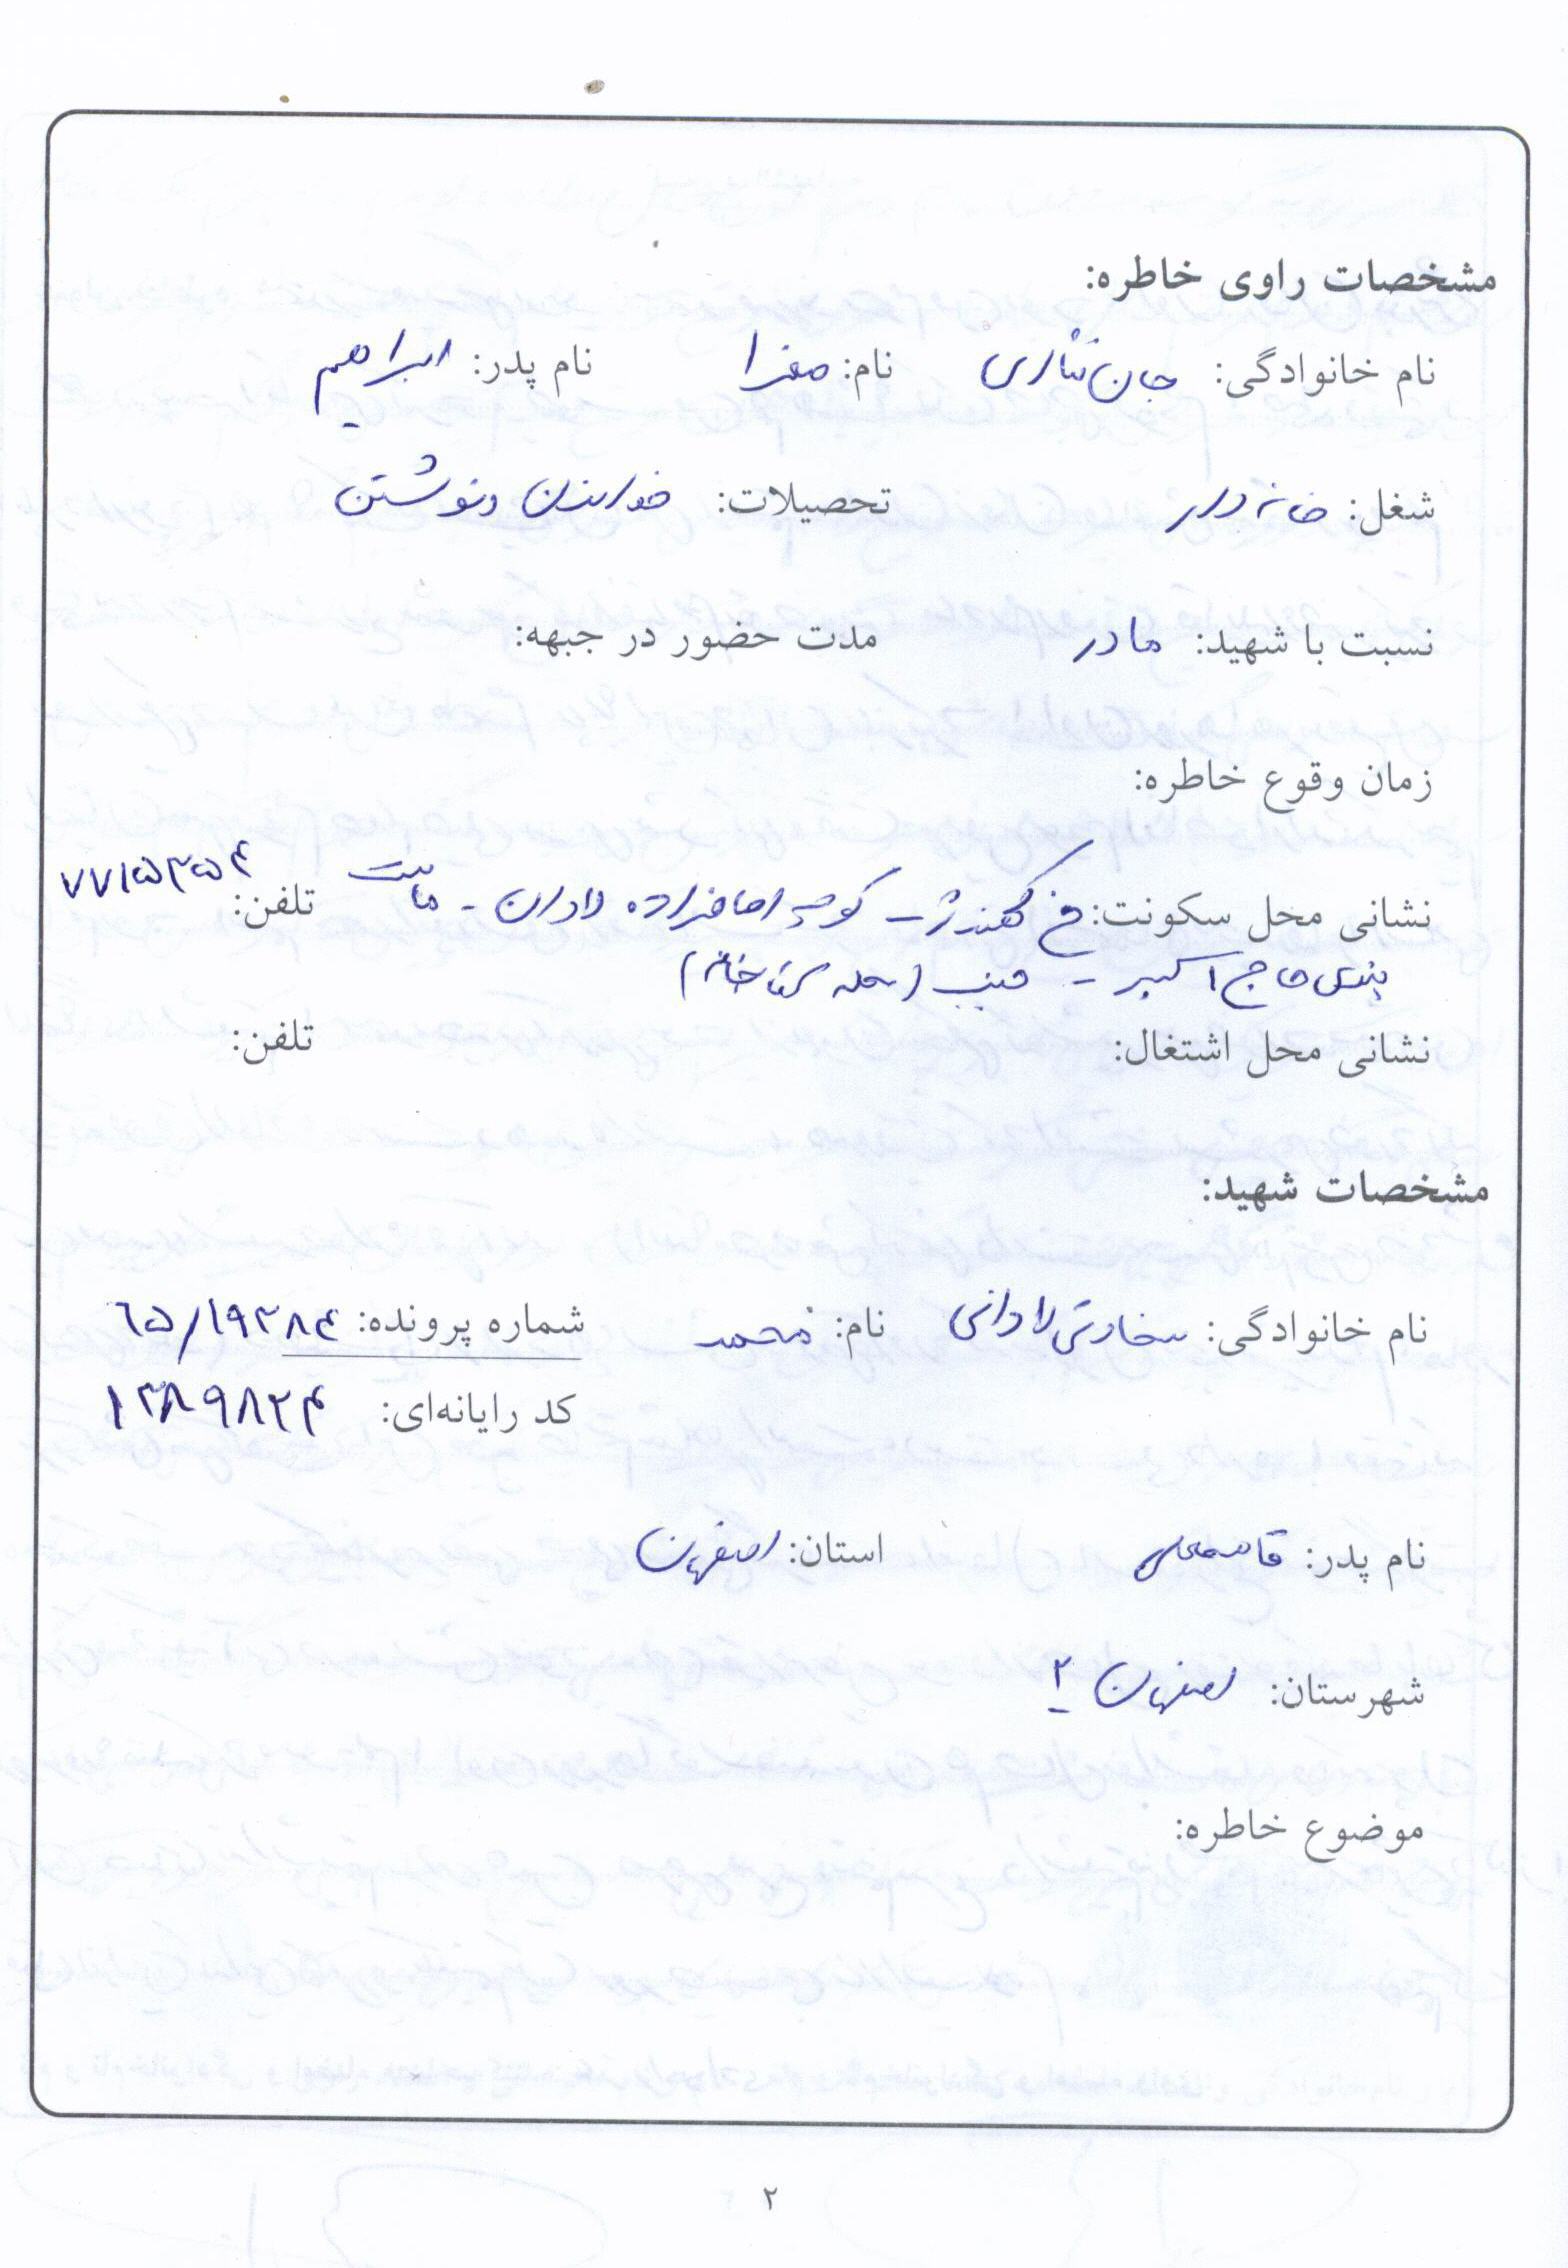 مشخصات راوی خاطره:
نام خانوادگی: جان نثاری نام: صغرا نام پدر: ابراهیم
شغل: خانه دار تحصیلات: خواندن ونوشتن
نسبت با شهید: مادر مدت حضور در جبهه:
زمان وقوع خاطره:
نشانی محل سکونت: خ کهندژ - کوچه امامزاده لادران - ماست تلفن: ۷۷۱۵۳۵۴
بندی حاج اکبر - جنب
نشانی محل اشتغال: تلفن:
مشخصات شهید:
نام خانوادگی: سخاوتی لادانی نام: محمد شماره پرونده: ۶۵/۱۹۲۸۴
کد رایانه‌ای: ۱۲۸۹۸۲۴
نام پدر: قاسمعلی استان: اصفهان
شهرستان: اصفهان ۲
موضوع خاطره:
۲